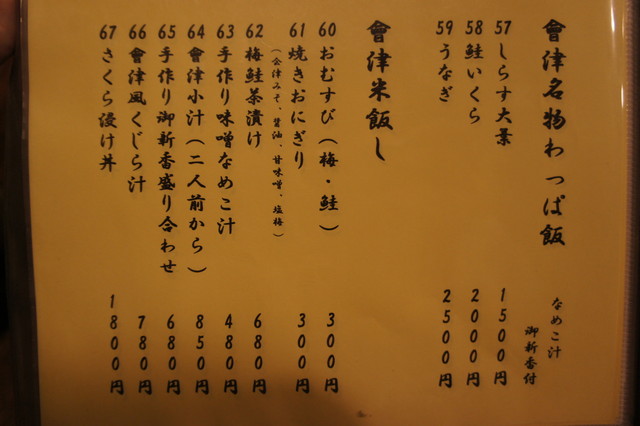 會津名物わっぱ飯
なめこ汁
御新香付
57 しらす大葉 1500円
58 鮭いくら 2000円
59 うなぎ 2500円
會津米飯し
60 おむすび(梅・鮭) 300円
61 焼きおにぎり 300円
(会津みそ、醤油、甘味噌、塩梅)
62 梅鮭茶漬け 680円
63 手作り味噌なめこ汁 480円
64 會津小汁(二人前から) 850円
65 手作り御新香盛り合わせ 680円
66 會津風くじら汁 780円
67 さくら漬け丼 1800円